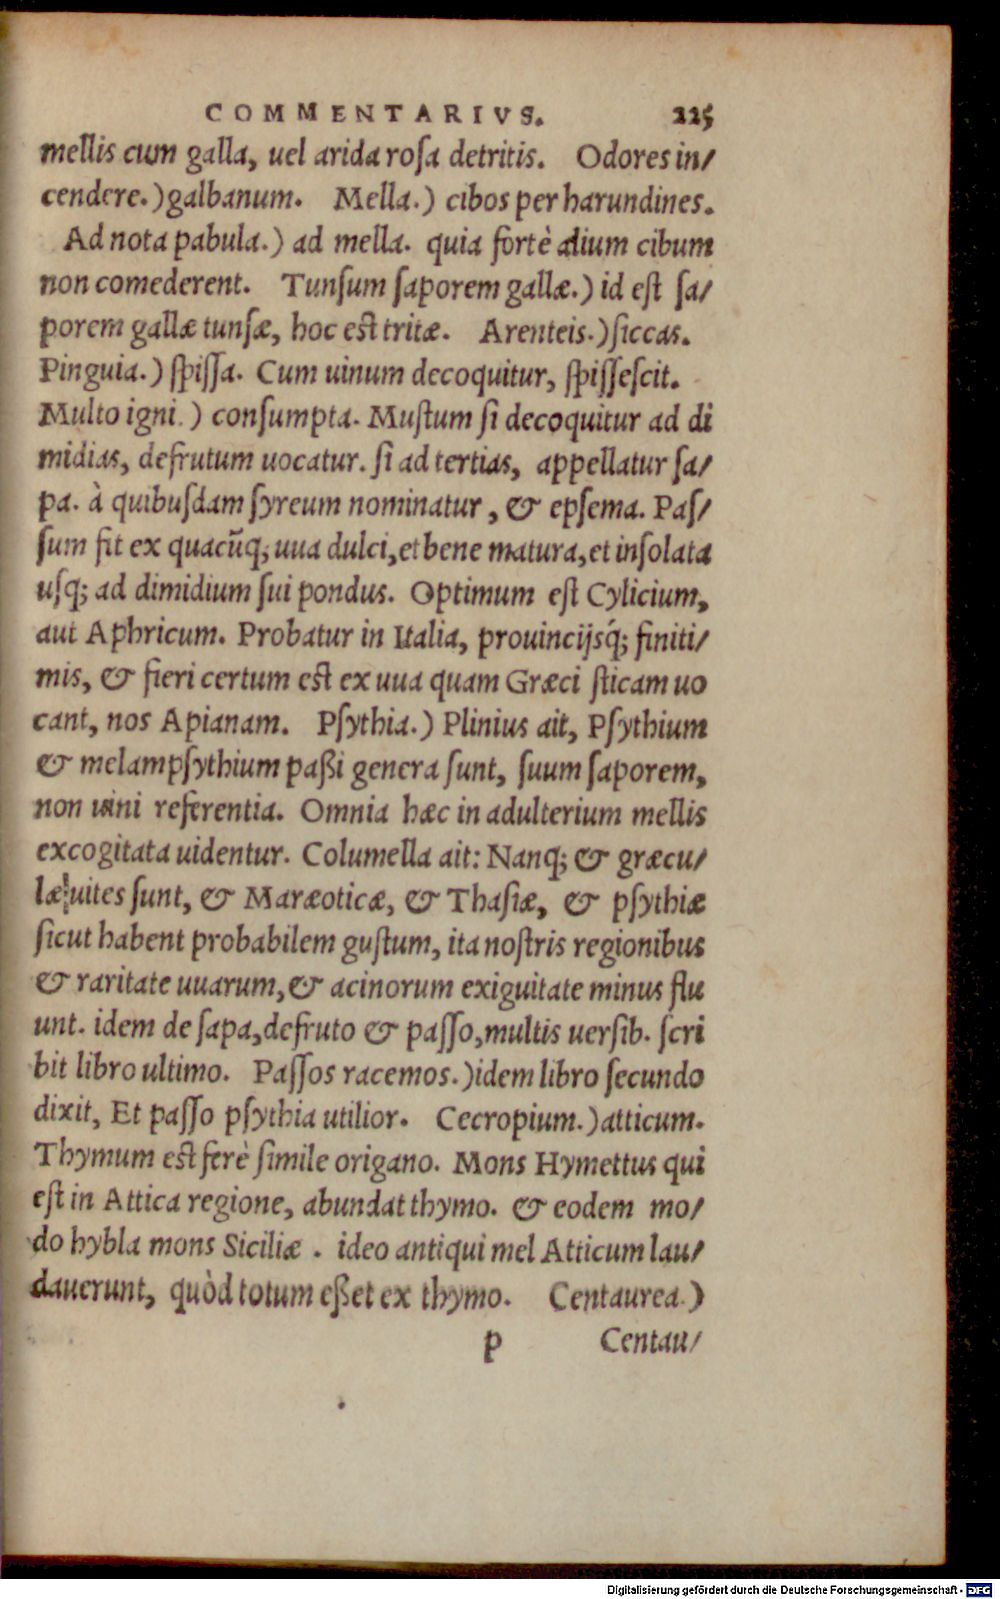 COMMENTARIVS. 225
mellis cum galla, uel arida roſa detritis. Odores in/
cendere.) galbanum. Mella.) cibos per harundines.
Ad nota pabula.) ad mella. quia fortè alium cibum
non comederent. Tunſum ſaporem gallæ.) id eſt ſa/
porem gallæ tunſæ, hoc eſt tritæ. Arenteis.) ſiccas.
Pinguia.) ſpiſſa. Cum uinum decoquitur, ſpiſſeſcit.
Multo igni.) conſumpta. Muſtum ſi decoquitur ad di
midias, defrutum uocatur. ſi ad tertias, appellatur ſa/
pa. à quibuſdam ſyreum nominatur, & epſema. Paſ/
ſum fit ex quacũq; uua dulci, et bene matura, et inſolata
uſq; ad dimidium ſui pondus. Optimum eſt Cylicium,
aut Aphricum. Probatur in Italia, prouincijsq́; finiti/
mis, & fieri certum eſt ex uua quam Græci ſticam uo
cant, nos Apianam. Pſythia.) Plinius ait, Pſythium
& melampſythium paßi genera ſunt, ſuum ſaporem,
non uini referentia. Omnia hæc in adulterium mellis
excogitata uidentur. Columella ait: Nanq; & græcu/
læ uites ſunt, & Maræoticæ, & Thaſiæ, & pſythiæ
ſicut habent probabilem guſtum, ita noſtris regionibus
& raritate uuarum, & acinorum exiguitate minus flu
unt. idem de ſapa, defruto & paſſo, multis uerſib. ſcri
bit libro ultimo. Paſſos racemos.) idem libro ſecundo
dixit, Et paſſo pſythia utilior. Cecropium.) atticum.
Thymum eſt ferè ſimile origano. Mons Hymettus qui
eſt in Attica regione, abundat thymo. & eodem mo/
do hybla mons Siciliæ. ideo antiqui mel Atticum lau/
dauerunt, quòd totum eßet ex thymo. Centaurea.)
p Centau/
Digitalisierung gefördert durch die Deutsche Forschungsgemeinschaft - DFG